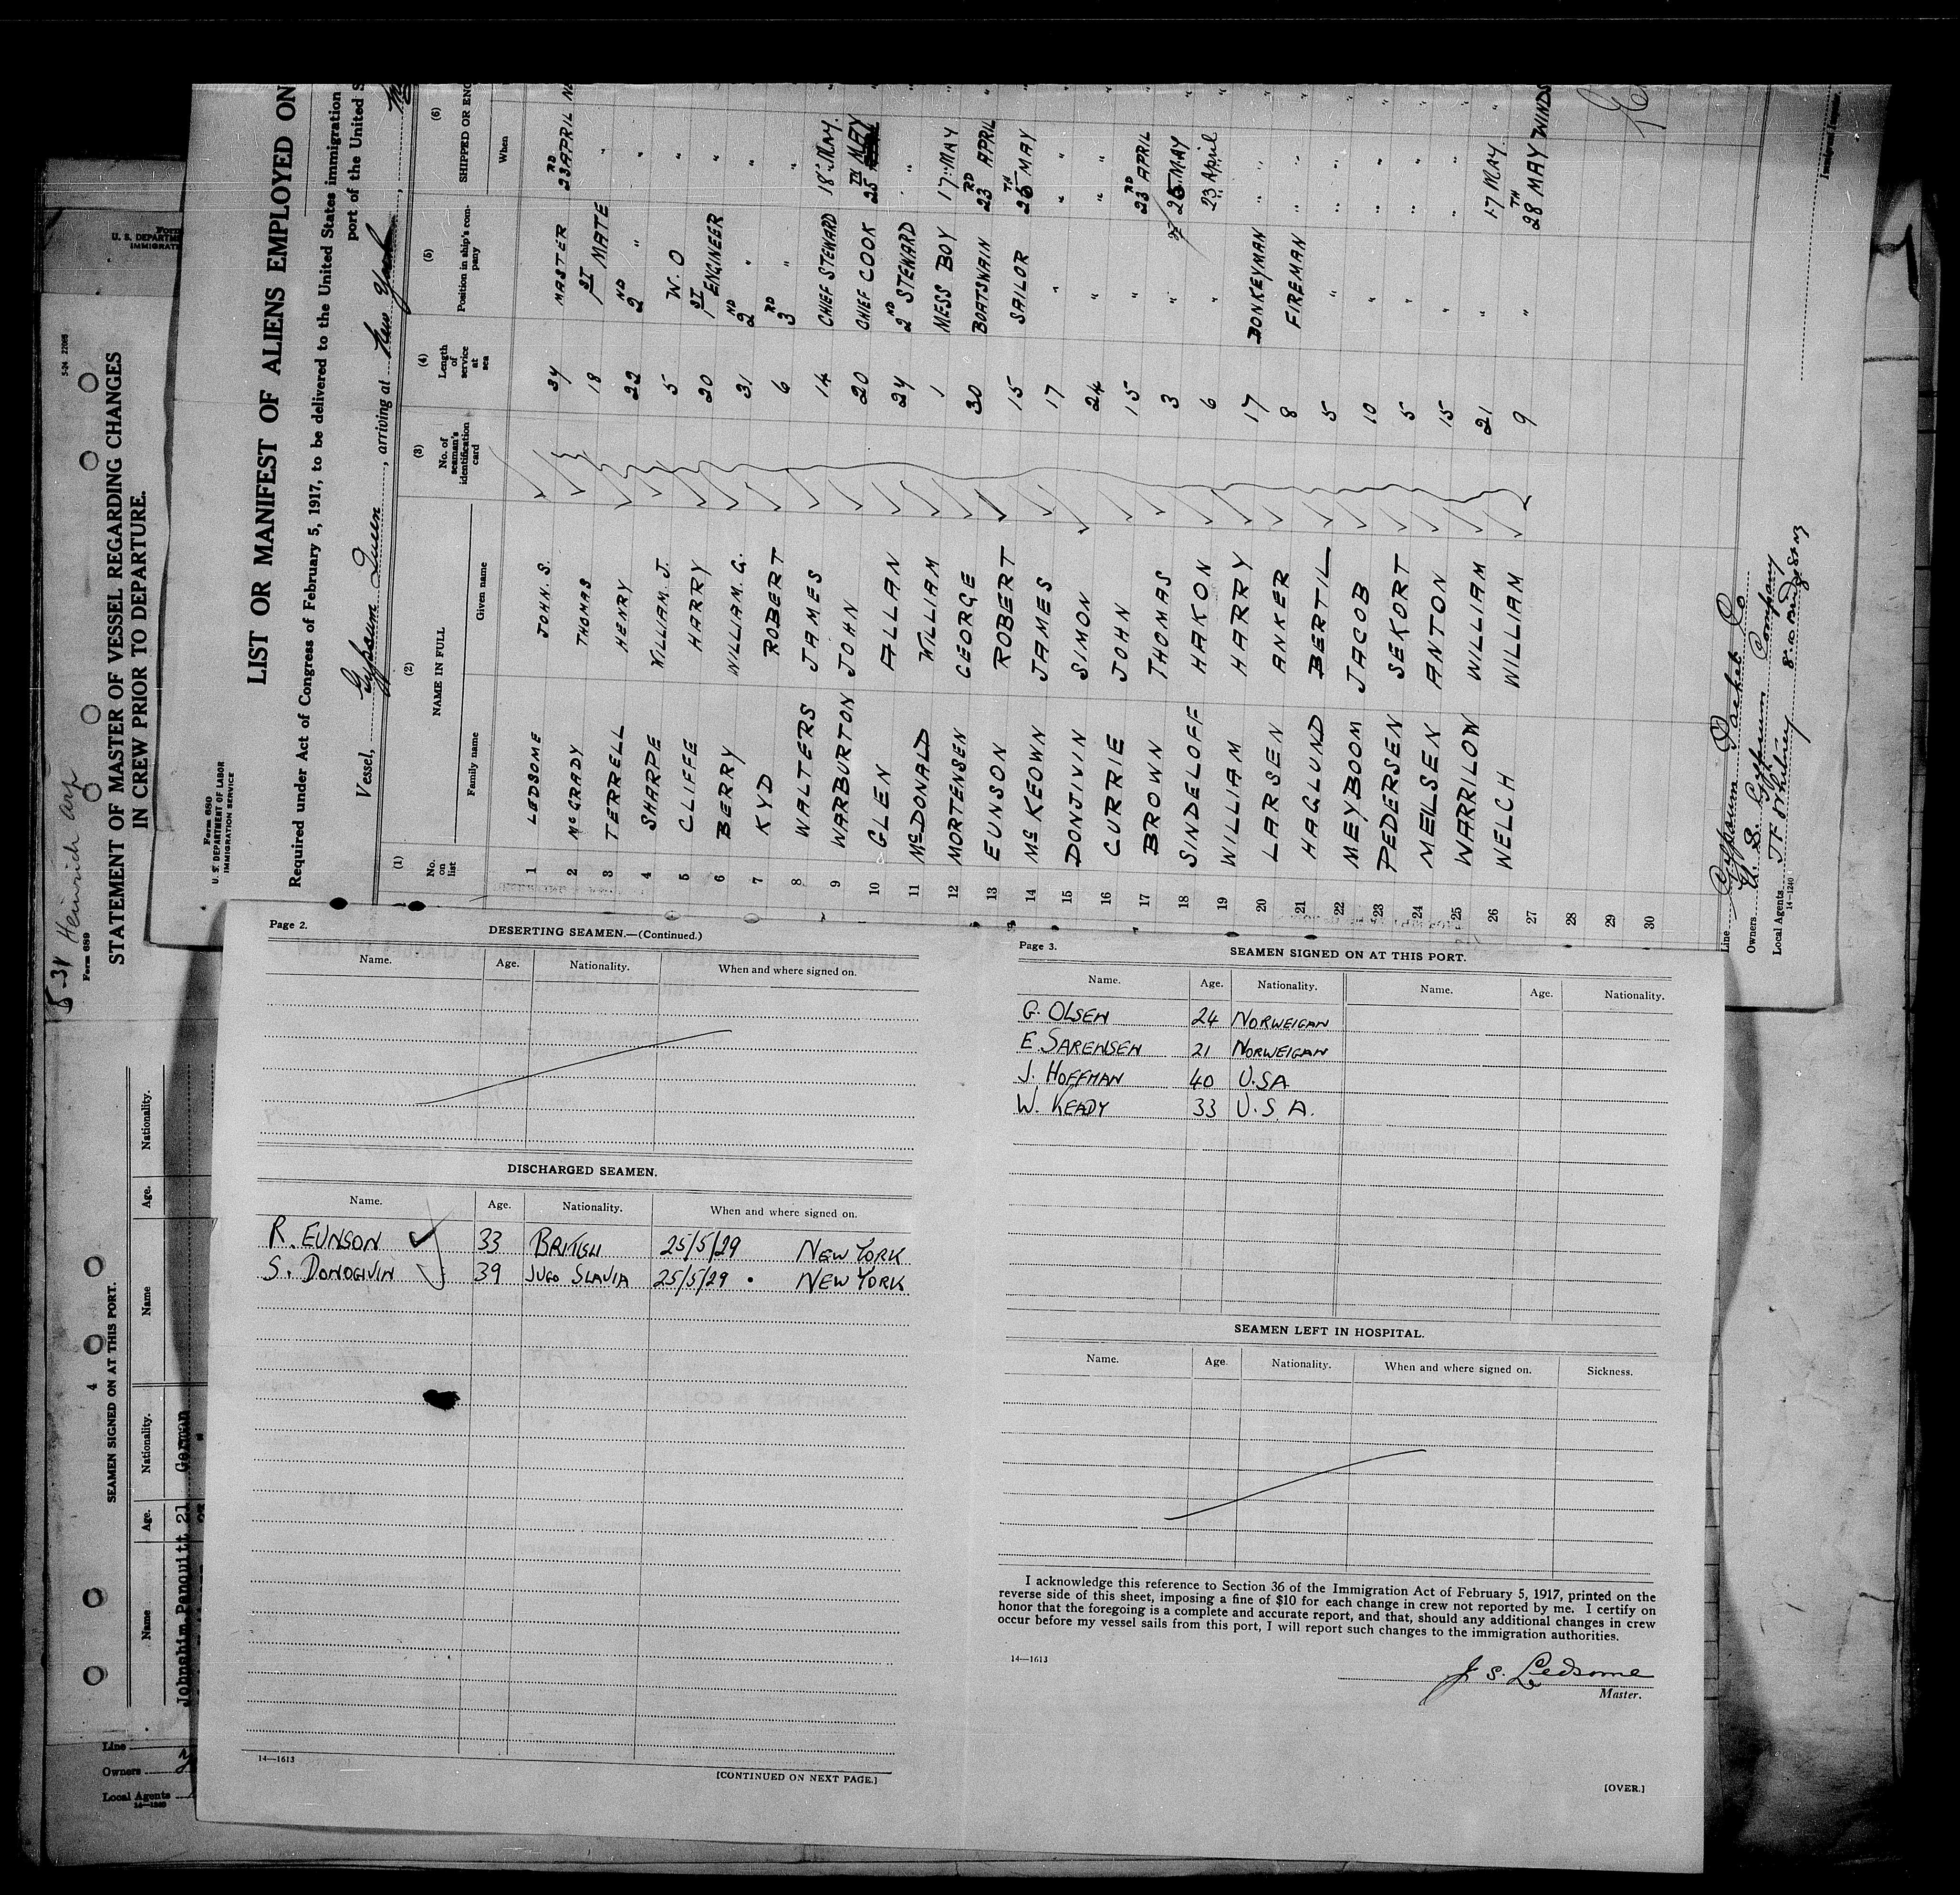 Form 680
U. S. DEPARTMENT OF LABOR
IMMIGRATION SERVICE
LIST OR MANIFEST OF ALIENS EMPLOYED ON
Required under Act of Congress of February 5, 1917, to be delivered to the United States immigration
port of the United S
Vessel, Gypsum Queen, arriving at New York,
(1) (2) (3) (4) (5) (6)
No. on list NAME IN FULL No. of seaman's identification card Length of service at sea Position in ship's company SHIPPED OR ENG
Family name Given name When
1 LEDSOME JOHN. S. 34 MASTER 23RD APRIL NE
2 McGRADY THOMAS 18 1ST MATE "
3 TERRELL HENRY 22 2ND " "
4 SHARPE WILLIAM. J. 5 W. O "
5 CLIFFE HARRY 20 1ST ENGINEER "
6 BERRY WILLIAM. G. 31 2ND " "
7 KYD ROBERT 6 3RD " "
8 WALTERS JAMES 14 CHIEF STEWARD 18th MAY. "
9 WARBURTON JOHN 20 CHIEF COOK 25TH MAY "
10 GLEN ALLAN 24 2ND STEWARD " "
11 McDONALD WILLIAM 1 MESS BOY 17th MAY "
12 MORTENSEN GEORGE 30 BOATSWAIN 23RD APRIL "
13 EUNSON ROBERT 15 SAILOR 25TH MAY "
14 McKEOWN JAMES 17 " " "
15 DONJIVIN SIMON 24 " " "
16 CURRIE JOHN 15 " 23RD APRIL "
17 BROWN THOMAS 3 " 25 MAY "
18 SINDELOFF HAKON 6 " 23 April "
19 WILLIAM HARRY 17 DONKEYMAN " "
20 LARSEN ANKER 8 FIREMAN " "
21 HAGLUND BERTIL 5 " " "
22 MEYBOOM JACOB 10 " " "
23 PEDERSEN SEKORT 5 " " "
24 MELSEN ANTON 15 " " "
25 WARRILOW WILLIAM 21 " 17 MAY. "
26 WELCH WILLIAM 9 " 28TH MAY WINDS
27
28
29
30
Line Gypsum Packet Co
Owners U. S. Gypsum Company
Local Agents J F Whitney
14-1240
Immigrant Inspector.
5-31 Heinrich Arp
Form 689
5-24 22065
STATEMENT OF MASTER OF VESSEL REGARDING CHANGES
IN CREW PRIOR TO DEPARTURE.
4
SEAMEN SIGNED ON AT THIS PORT.
Name Age. Nationality. Name Age. Nationality.
Johnshim Panquitt 21 German
Form
U. S. DEPARTME
IMMIGRATI
Line
Owners
Local Agents
14-1240
Page 2.
DESERTING SEAMEN.—(Continued.)
Name. Age. Nationality. When and where signed on.
DISCHARGED SEAMEN.
Name. Age. Nationality. When and where signed on.
R. EUNSON 33 BRITISH 25/5/29 NEW YORK
S. DONOGIVIN 39 JUGO SLAVIA 25/5/29 . NEW YORK
14—1613
[CONTINUED ON NEXT PAGE.]
Page 3.
SEAMEN SIGNED ON AT THIS PORT.
Name. Age. Nationality. Name. Age. Nationality.
G. OLSEN 24 NORWEIGAN
E SARENSEN 21 NORWEIGAN
J. HOFFMAN 40 U.SA
W. KEADY 33 U.S.A.
SEAMEN LEFT IN HOSPITAL.
Name. Age. Nationality. When and where signed on. Sickness.
I acknowledge this reference to Section 36 of the Immigration Act of February 5, 1917, printed on the
reverse side of this sheet, imposing a fine of $10 for each change in crew not reported by me. I certify on
honor that the foregoing is a complete and accurate report, and that, should any additional changes in crew
occur before my vessel sails from this port, I will report such changes to the immigration authorities.
14—1613
J. S. Ledsome
Master.
[OVER.]